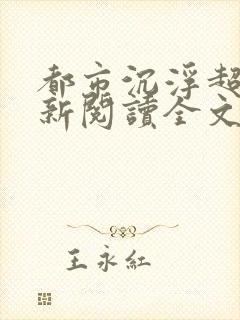 都市沉浮超
新閱讀全文
王永紅